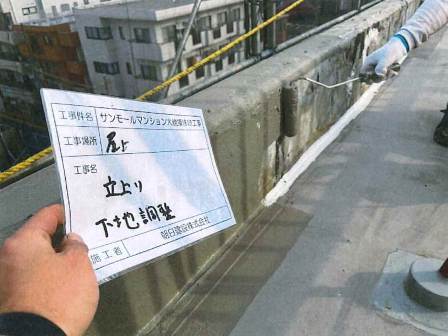 工事件名 サンモールマンション大規模修繕工事
工事場所 屋上
工事名
立上り
下地調整
施工者 朝日建設株式会社